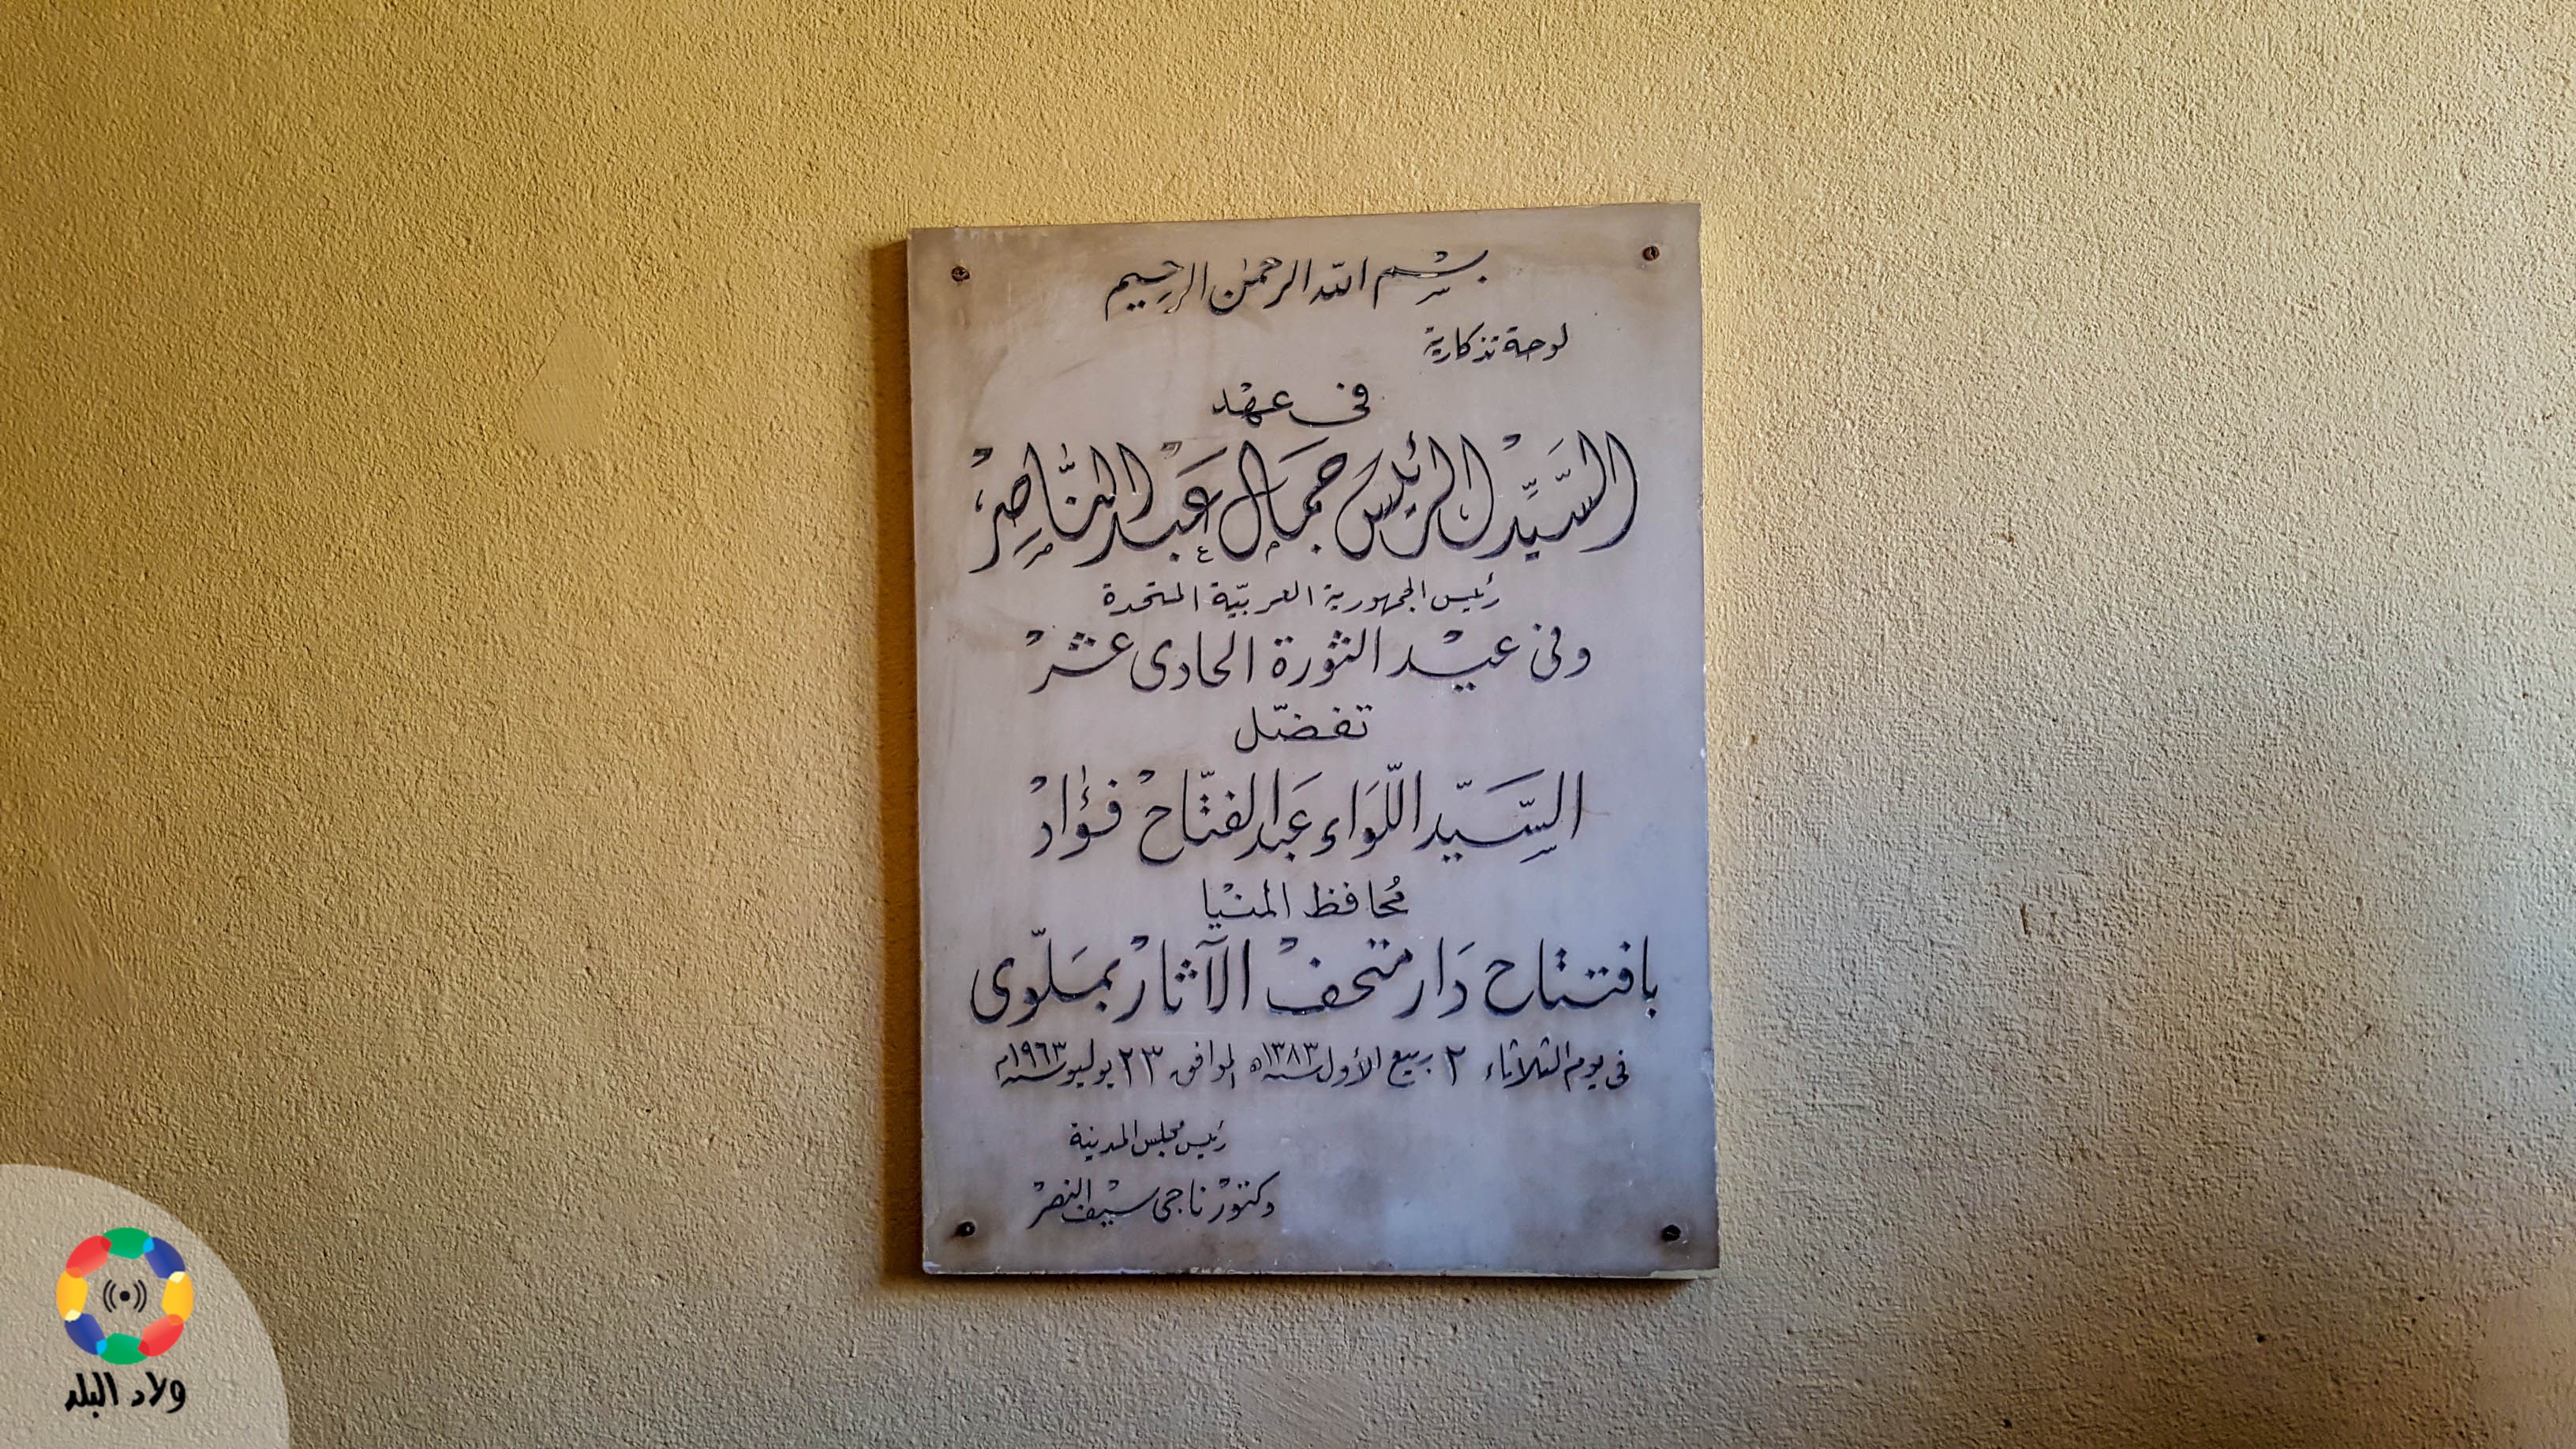 بسم الله الرحمن الرحيم
لوحة تذكارية
فى عهد
السَّيِّد الرئيس جمَال عَبْد النَّاصِر
رئيس الجمهورية العربيّة المتحدة
وفى عيد الثورة الحادى عشر
تفضّل
السَّيّد اللّوَاء عَبد الفتّاح فؤاد
مُحافظ المنيا
بافتتاح دَار متحف الآثار بمَلّوى
فى يوم الثلاثاء ٢ ربيع الأول سنة ١٣٨٣ھ الموافق ٢٣ يوليو سنة ١٩٦٣م
رئيس مجلس المدينة
دكتور ناجى سيف النصر
ولاد البلد